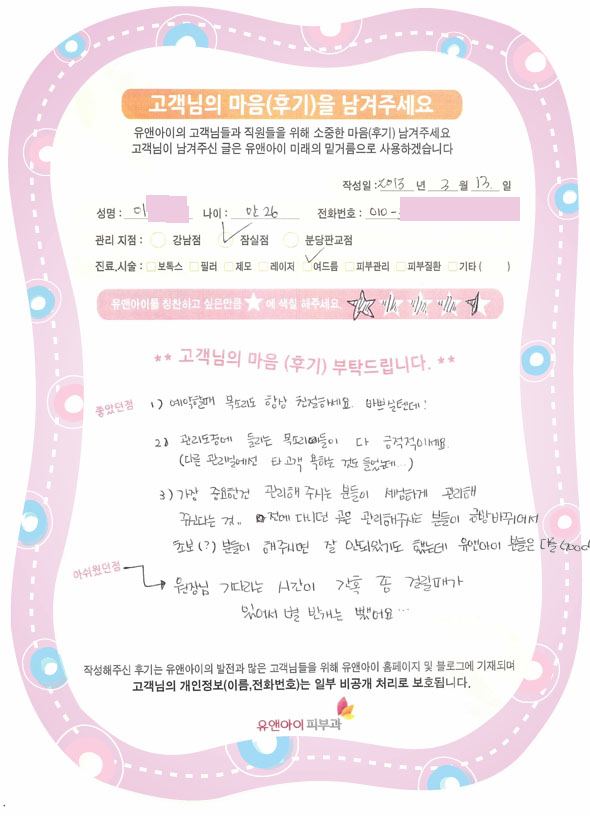 고객님의 마음(후기)을 남겨주세요
유앤아이의 고객님들과 직원들을 위해 소중한 마음(후기) 남겨주세요
고객님이 남겨주신 글은 유앤아이 미래의 밑거름으로 사용하겠습니다
작성일 : 2013 년 3 월 13. 일
성명 : 이 나이 : 만 26 전화번호 : 010 -
관리 지점 : 강남점 잠실점 분당판교점
진료,시술 : 보톡스 필러 제모 레이저 여드름 피부관리 피부질환 기타 ( )
유앤아이를 칭찬하고 싶은만큼 ★ 에 색칠 해주세요
** 고객님의 마음 (후기) 부탁드립니다. **
좋았던점 1) 예약할때 목소리도 항상 친절하세요. 바쁘실텐데!
2) 관리도중에 들리는 목소리들이 다 긍정적이세요.
(다른 관리실에선 타고객 욕하는 것도 들었는데...)
3) 가장 중요한건 관리해 주시는 분들이 세심하게 관리해
주신다는 것.. 전에 다니던 곳은 관리해주시는 분들이 금방 바뀌어서
초보(?) 분들이 해주시면 잘 안되있기도 했는데 유앤아이 분들은 다들 Good
아쉬웠던점 원장님 기다리는 시간이 간혹 좀 걸릴때가
있어서 별 반개는 뺐어요...
작성해주신 후기는 유앤아이의 발전과 많은 고객님들을 위해 유앤아이 홈페이지 및 블로그에 기재되며
고객님의 개인정보(이름,전화번호)는 일부 비공개 처리로 보호됩니다.
유앤아이 피부과